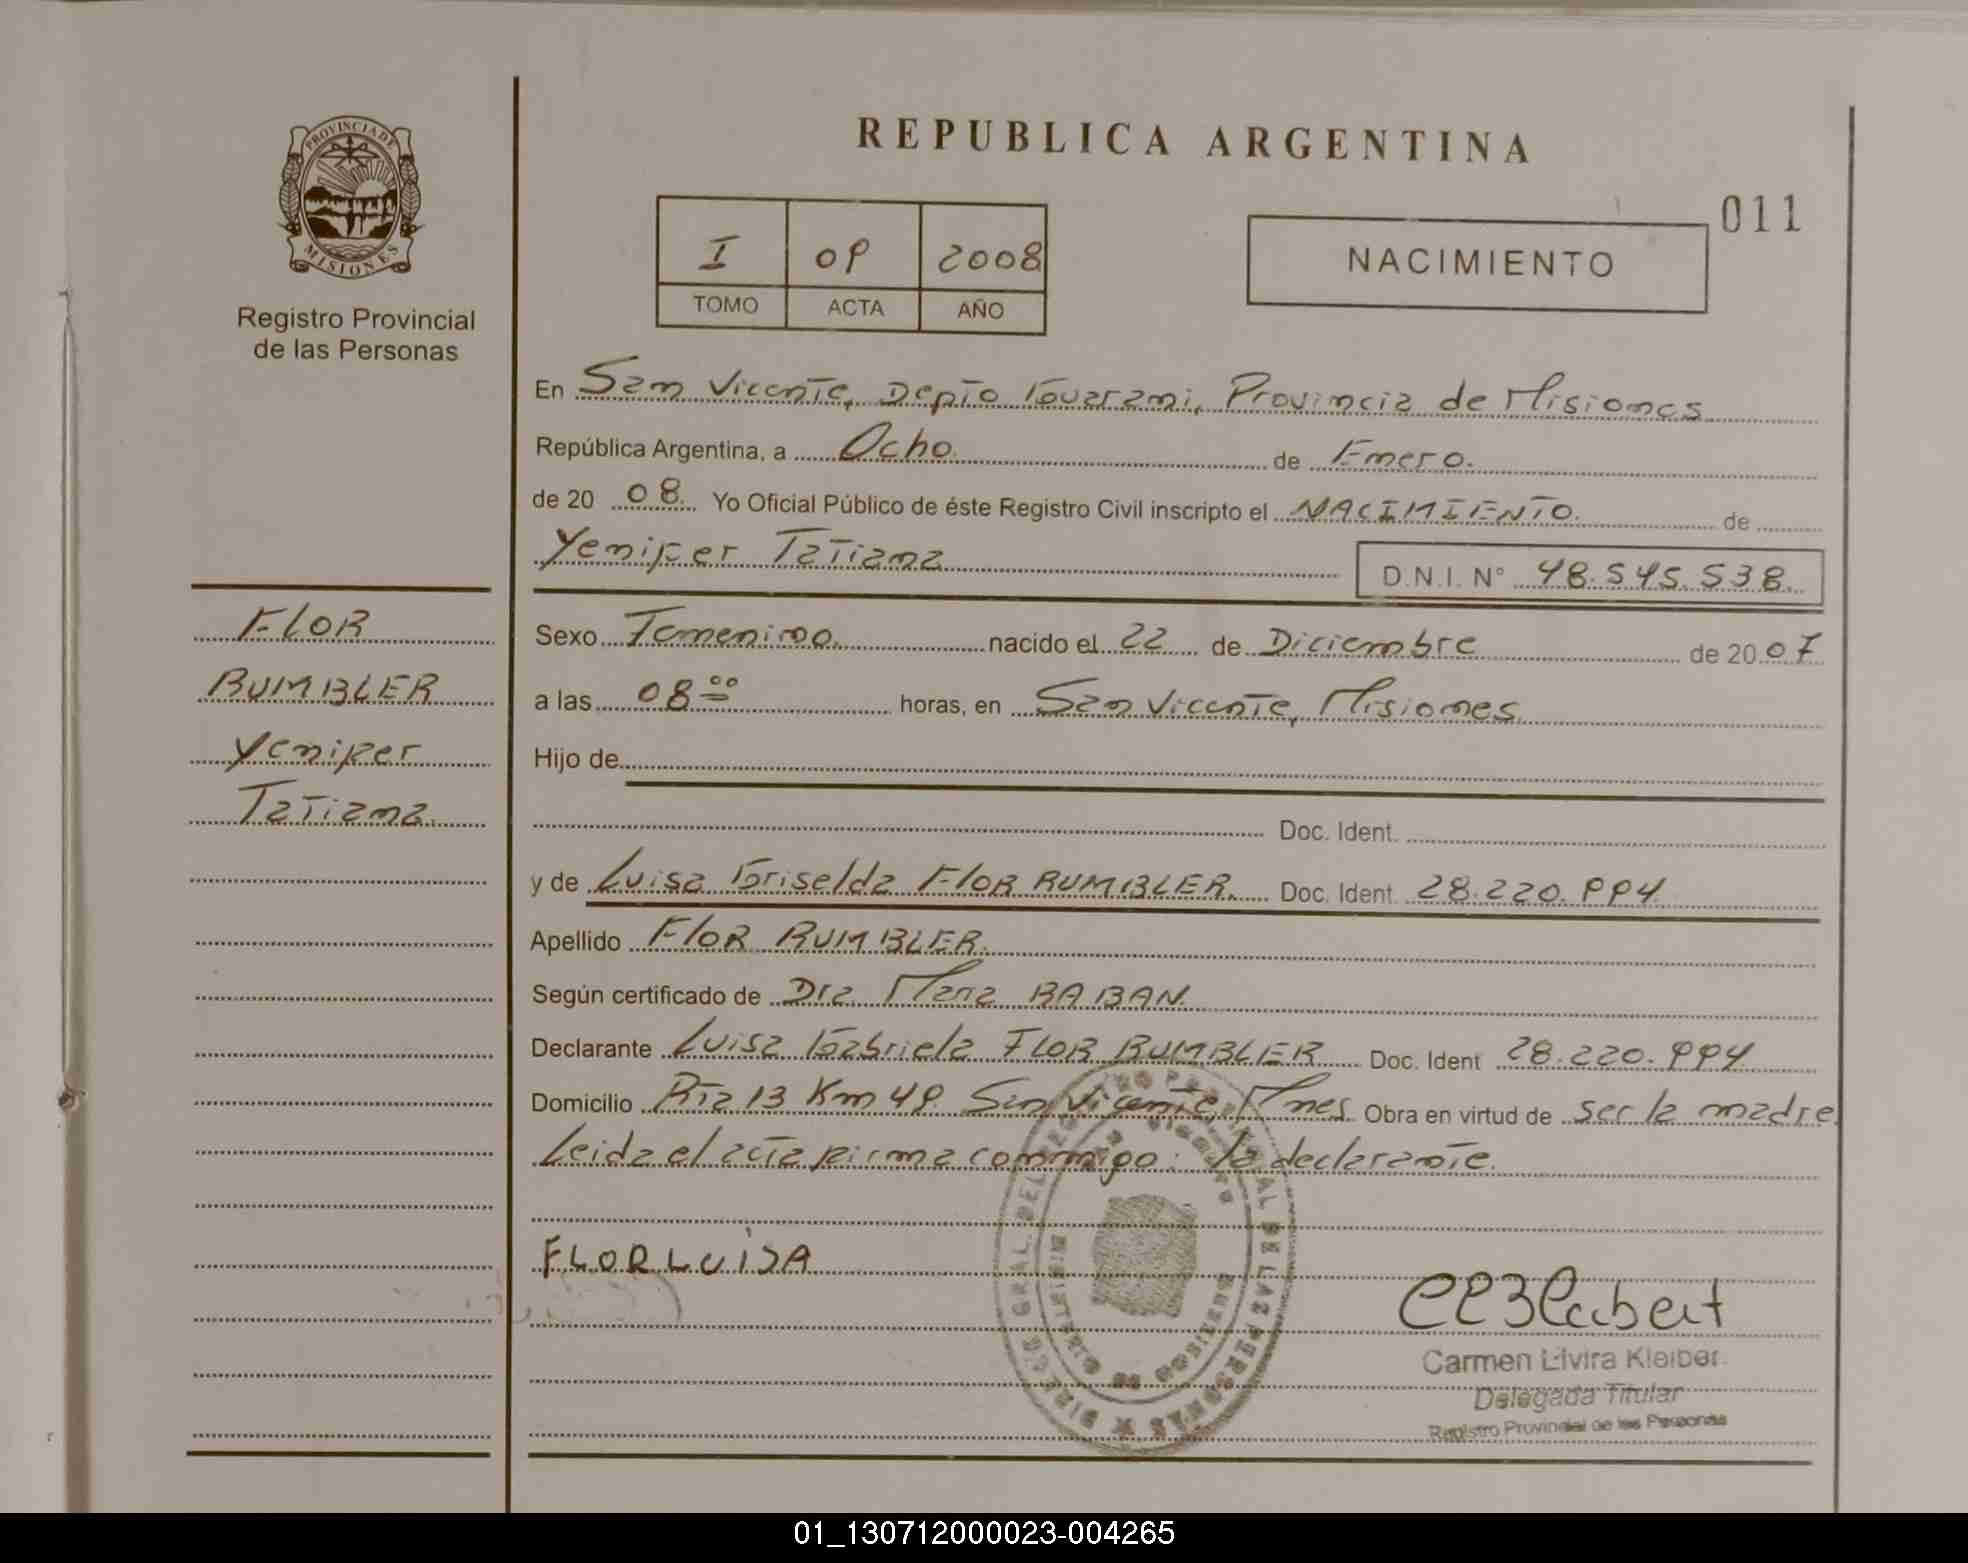 PROVINCIA DE
MISIONES
Registro Provincial
de las Personas
FLOR
RUMBLER
Yenifer
Tatiana.
REPUBLICA ARGENTINA
011
I 09 2008
TOMO ACTA AÑO
NACIMIENTO
En San Vicente, Depto Guarani, Provincia de Misiones
República Argentina, a Ocho. de Enero.
de 20 08. Yo Oficial Público de éste Registro Civil inscripto el NACIMIENTO. de
Yenifer Tatiana D.N.I. N° 48.545.538.
Sexo Femenino. nacido el 22 de Diciembre de 20 07
a las 08:00 horas, en San Vicente, Misiones
Hijo de
Doc. Ident.
y de Luisa Griselda FLOR RUMBLER. Doc. Ident. 28.220.994
Apellido FLOR RUMBLER.
Según certificado de Dra. Maria BABAN.
Declarante Luisa Gabriela FLOR RUMBLER Doc. Ident 28.220.994
Domicilio Rta 13 Km 49. San Vicente, Mnes Obra en virtud de ser la madre.
Leida el acta firma conmigo: la declarante.
FLOR LUISA
Carmen Elvira Kleiber
Delegada Titular
Registro Provincial de las Personas
01_130712000023-004265